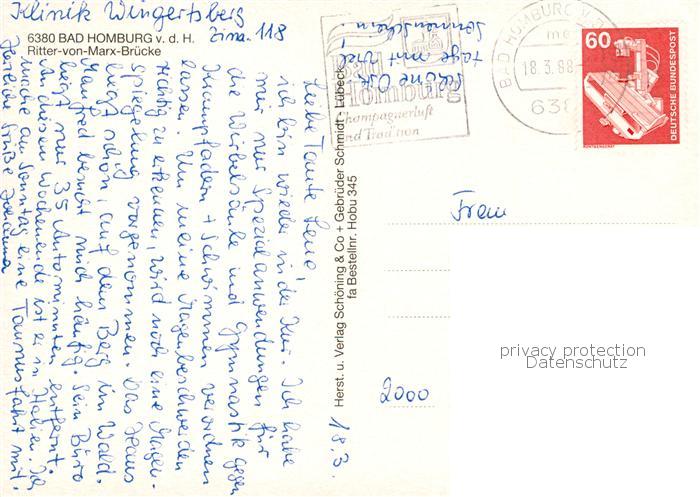 Klinik Wingertsberg
Zima. 118
6380 BAD HOMBURG v. d. H.
Ritter-von-Marx-Brücke
18.3.
Liebe Tante Lene,
ich bin wieder in der Kur. Ich habe
mir nur Spezialanwendungen für
die Wirbelsäule und Gymnastik gegen
Krampfadern + Schwimmen verordnen
lassen. Um meine Magenbeschwerden
richtig zu erkennen, wird noch eine Magen-
spiegelung vorgenommen. Das Haus
liegt schön, auf dem Berg im Wald.
Manfred besucht mich häufig. Sein Büro
liegt nur 35 Autominuten entfernt.
An diesem Wochenende ist er in Italien. Ich
mache am Sonntag eine Taunusfahrt mit.
Herzliche Grüße Johanna
Schöne Oster-
tage mit viel
Sonnenschein!
Herst. u. Verlag Schöning & Co + Gebrüder Schmidt · Lübeck
fa Bestellnr. Hobu 345
Bad
Homburg
Champagnerluft
und Tradition
BAD HOMBURG V.D.
18.3.88
638
60
DEUTSCHE BUNDESPOST
RÖNTGENGERÄT
Frau
2000
privacy protection
Datenschutz